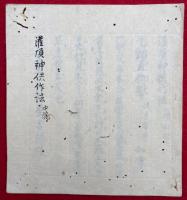 灌頂神供作法